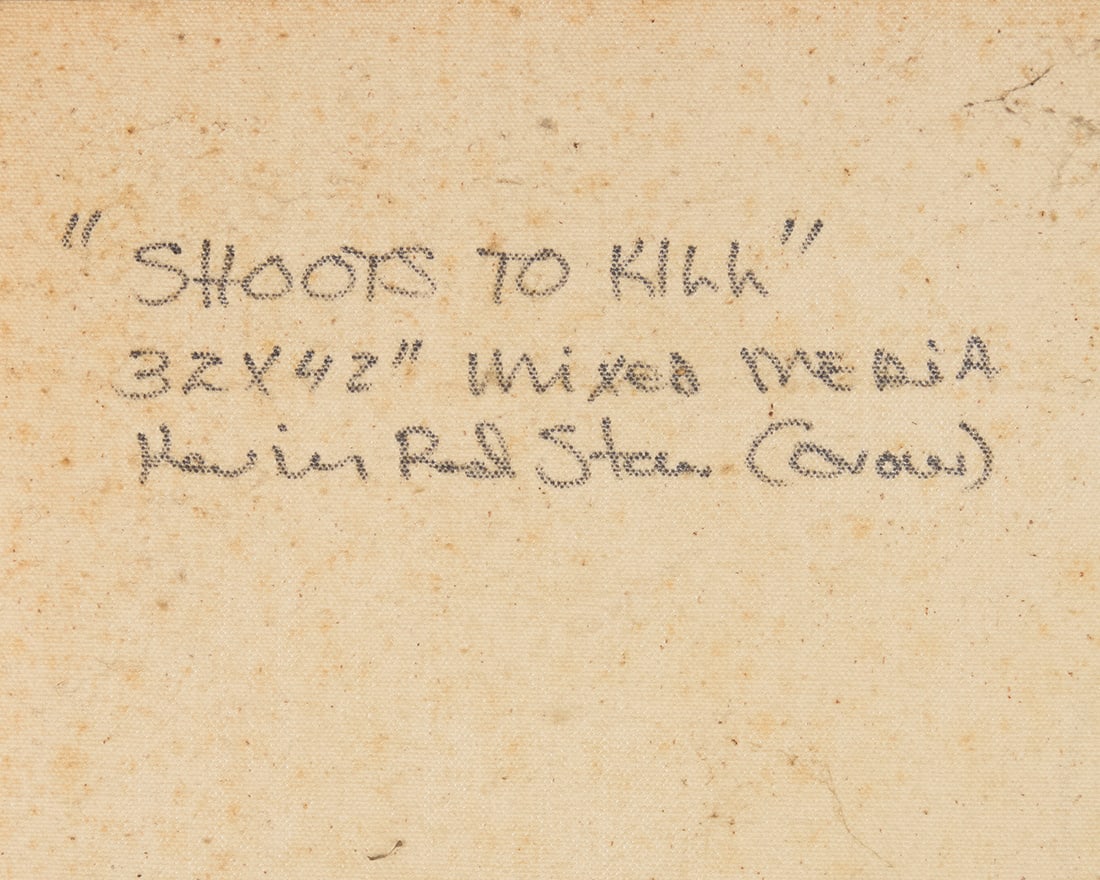 "SHOOTS TO KILL"
32X42" MIXED MEDIA
Kevin Red Star (Crow)